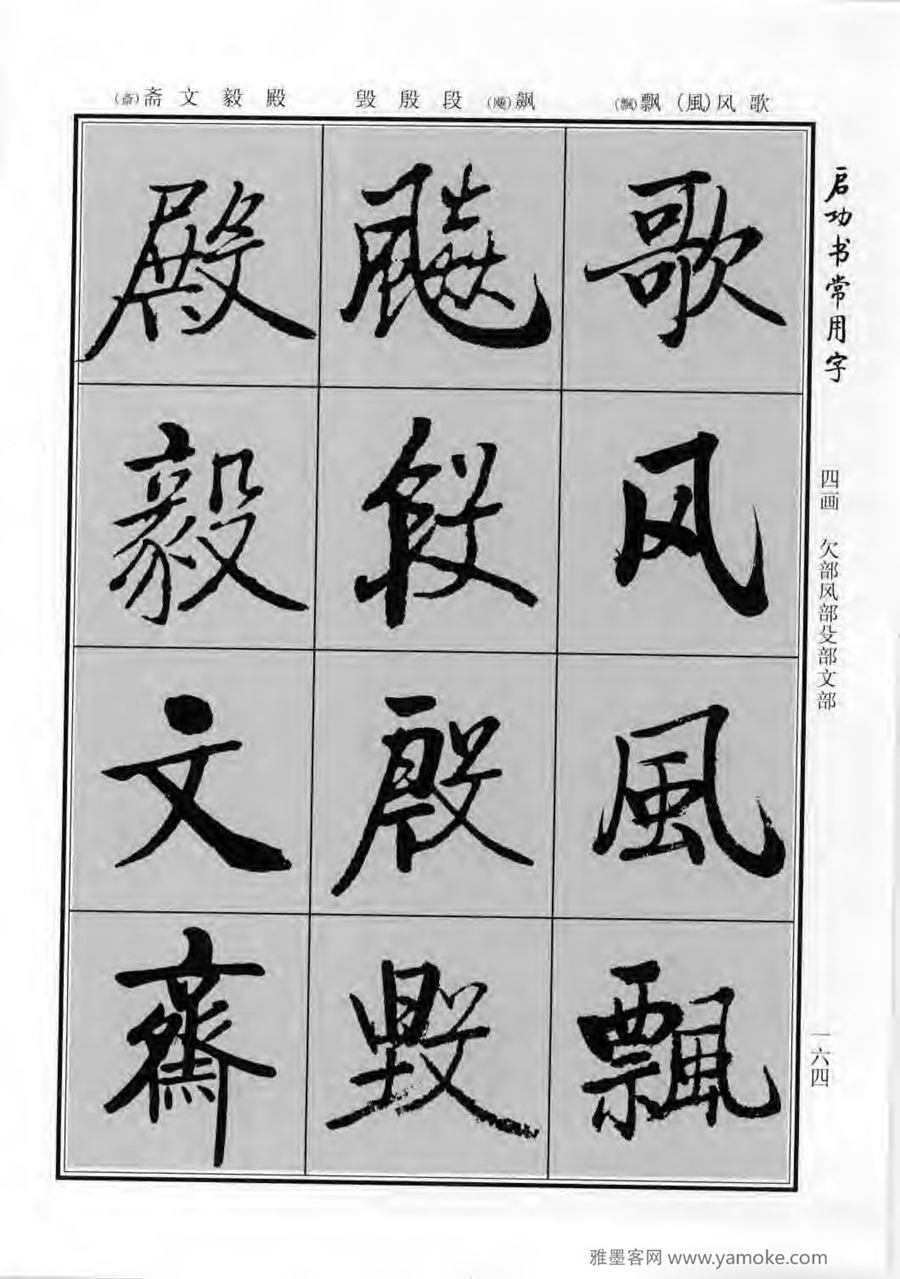 歌风(風)飘(飄)
飙段殷毁
殿毅文斋(齋)
启功书常用字
四画 欠部风部殳部文部
一六四
歌风風飄
段殷毁
殿毅文齋
雅墨客网 www.yamoke.com